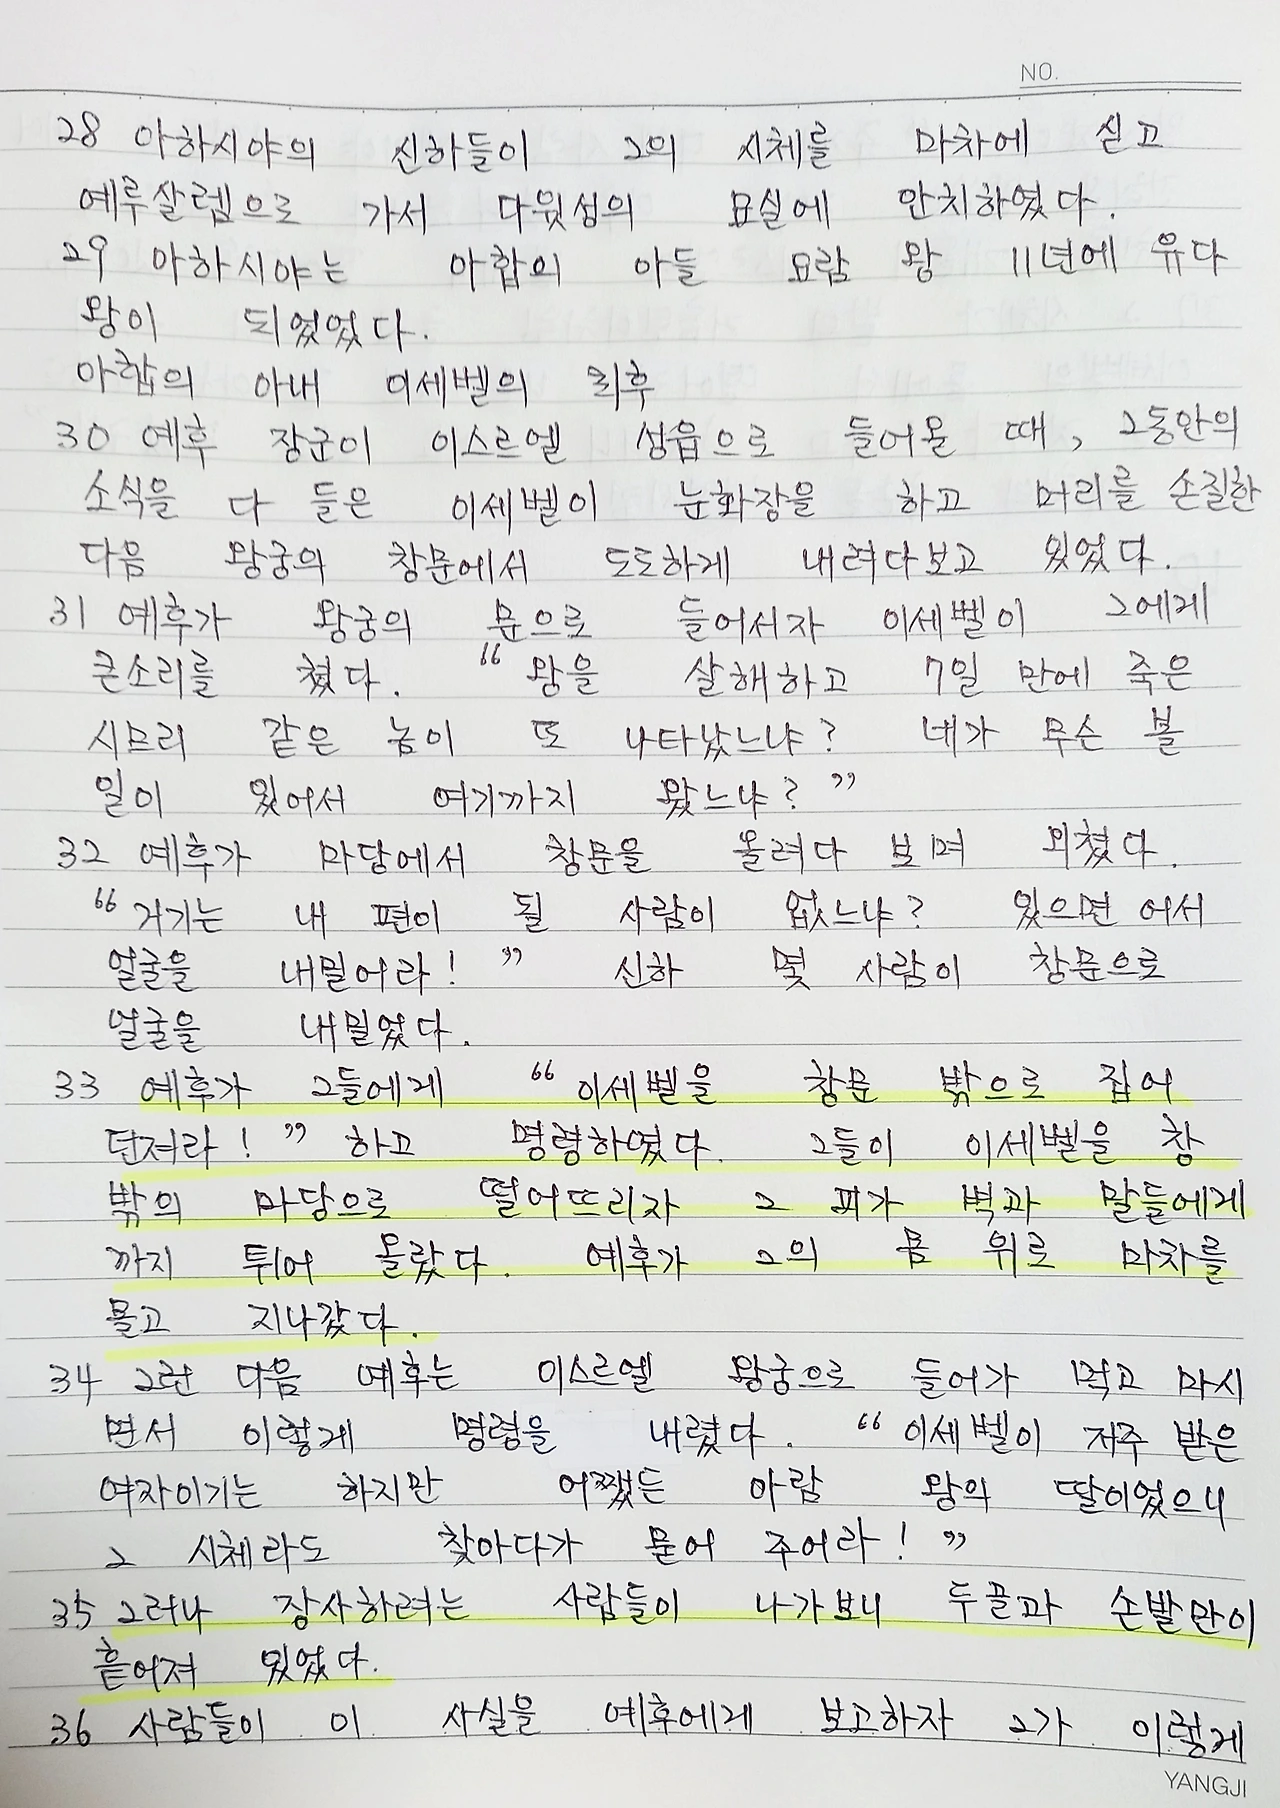 NO.
28 아하시야의 신하들이 그의 시체를 마차에 싣고
예루살렘으로 가서 다윗성의 묘실에 안치하였다.
29 아하시야는 아합의 아들 요람 왕 11년에 유다
왕이 되었었다.
아합의 아내 이세벨의 최후
30 예후 장군이 이스르엘 성읍으로 들어올 때, 그동안의
소식을 다 들은 이세벨이 눈화장을 하고 머리를 손질한
다음 왕궁의 창문에서 도도하게 내려다보고 있었다.
31 예후가 왕궁의 문으로 들어서자 이세벨이 그에게
큰소리를 쳤다. “왕을 살해하고 7일 만에 죽은
시므리 같은 놈이 또 나타났느냐? 네가 무슨 볼
일이 있어서 여기까지 왔느냐?”
32 예후가 마당에서 창문을 올려다 보며 외쳤다.
“거기는 내 편이 될 사람이 없느냐? 있으면 어서
얼굴을 내밀어라!” 신하 몇 사람이 창문으로
얼굴을 내밀었다.
33 예후가 그들에게 “이세벨을 창문 밖으로 집어
던져라!” 하고 명령하였다. 그들이 이세벨을 창
밖의 마당으로 떨어뜨리자 그 피가 벽과 말들에게
까지 튀어 올랐다. 예후가 그의 몸 위로 마차를
몰고 지나갔다.
34 그런 다음 예후는 이스르엘 왕궁으로 들어가 먹고 마시
면서 이렇게 명령을 내렸다. “이세벨이 저주 받은
여자이기는 하지만 어쨌든 아람 왕의 딸이었으니
그 시체라도 찾아다가 묻어 주어라!”
35 그러나 장사하려는 사람들이 나가보니 두골과 손발만이
흩어져 있었다.
36 사람들이 이 사실을 예후에게 보고하자 그가 이렇게
YANGJI